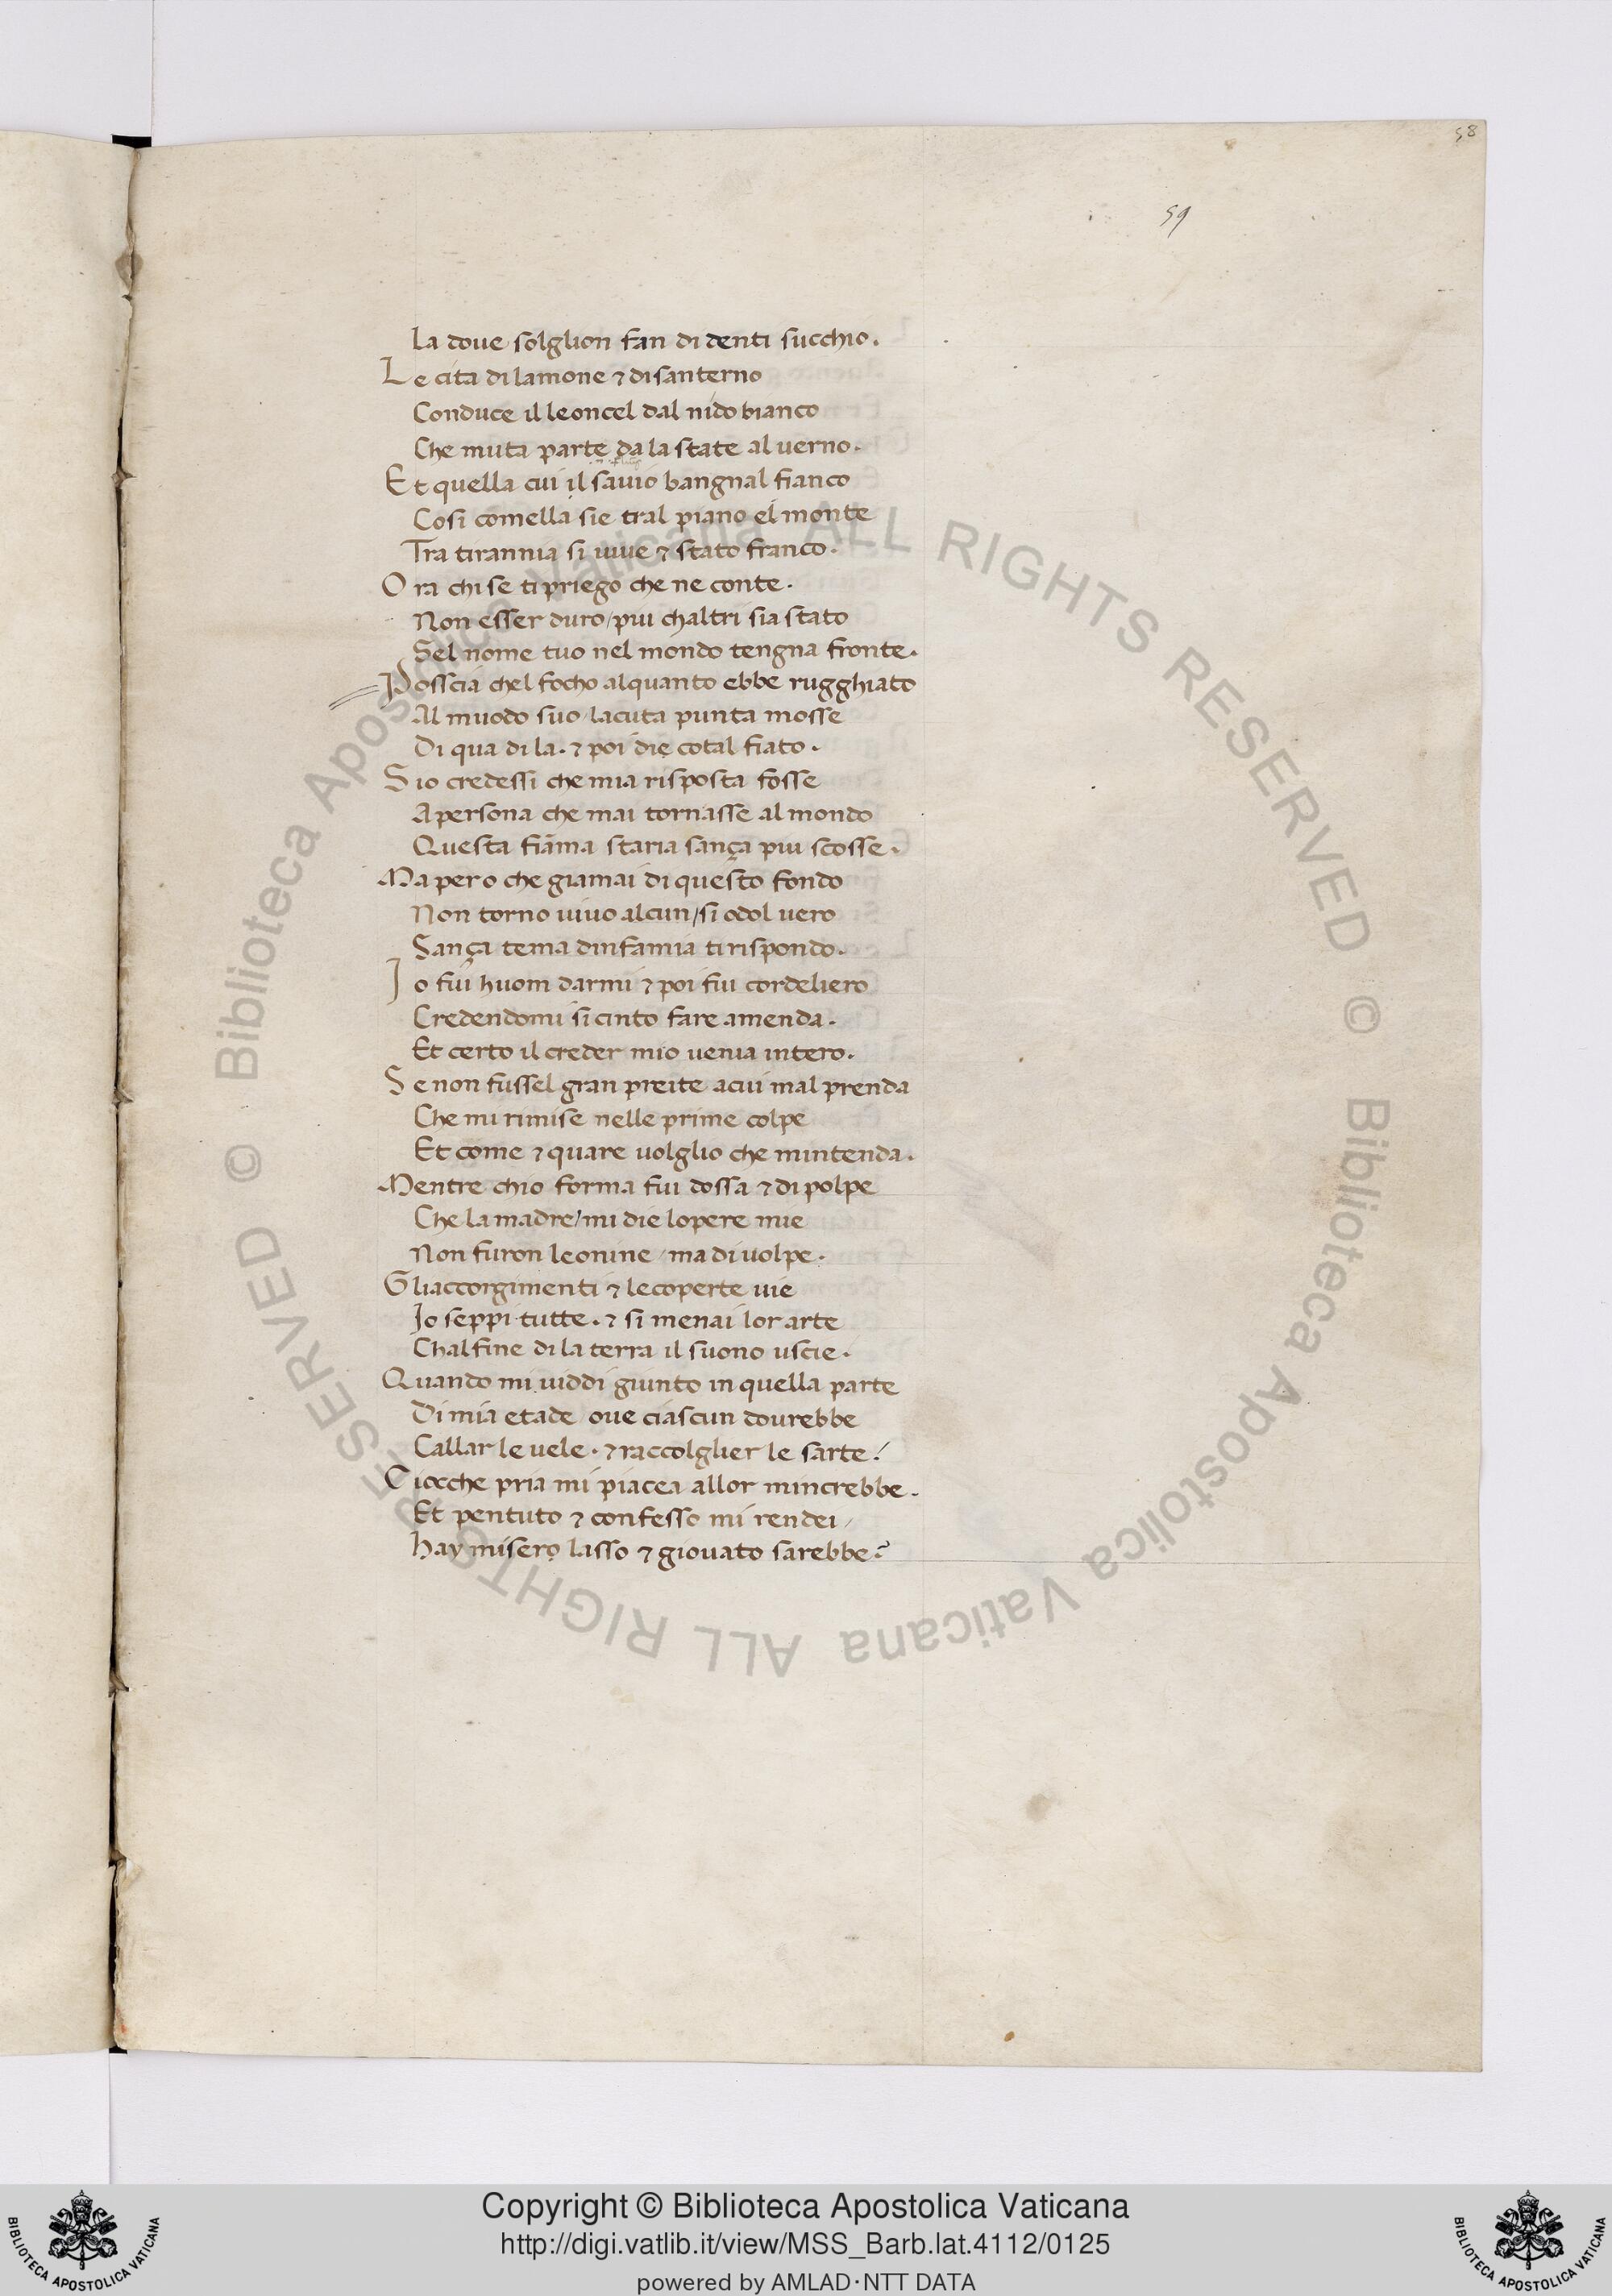 58
59
La doue solglion fan di denti succhio.
Le cita di lamone ⁊ di santerno
Conduce il leoncel dal nido bianco
Che muta parte da la state al uerno.
Et quella cui il sauio bangnal fianco
Cosi comella sie tral piano el monte
Tra tirannia si uiue ⁊ stato franco.
Ora chi se ti priego che ne conte.
Non esser duro / piu chaltri sia stato
Sel nome tuo nel mondo tengna fronte.
Posscia chel focho alquanto ebbe rugghiato
Al muodo suo / lacuta punta mosse
Di qua di la. ⁊ poi die cotal fiato.
Sio credessi che mia risposta fosse
A persona che mai tornasse al mondo
Questa fiāma staria sança piu scosse.
Ma pero che giamai di questo fondo
Non torno uiuo alcun / si odol uero
Sança tema dinfamia ti rispondo.
Io fui huom darmi ⁊ poi fui cordeliero
Credendomi si cinto fare amenda.
Et certo il creder mio uenia intero.
Se non fussel gran preite acui mal prenda
Che mi rimise nelle prime colpe
Et come ⁊ quare uolglio che mintenda.
Mentre chio forma fui dossa ⁊ di polpe
Che la madre / mi die lopere mie
Non furon leonine / ma di uolpe.
Gliaccorgimenti ⁊ le coperte uie
Io seppi tutte. ⁊ si menai lor arte
Chal fine di la terra il suono uscie.
Quando mi uiddi giunto in quella parte
Di mia etade oue ciascun dourebbe
Callar le uele. ⁊ raccolglier le sarte!
Cioche pria mi piacea allor mincrebbe.
Et pentuto ⁊ confesso mi rendei /
hay misero lasso ⁊ giouato sarebbe?
© Biblioteca Apostolica Vaticana ALL RIGHTS RESERVED
© Biblioteca Apostolica Vaticana ALL RIGHTS RESERVED
Copyright © Biblioteca Apostolica Vaticana
http://digi.vatlib.it/view/MSS_Barb.lat.4112/0125
powered by AMLAD·NTT DATA
BIBLIOTECA APOSTOLICA VATICANA
BIBLIOTECA APOSTOLICA VATICANA